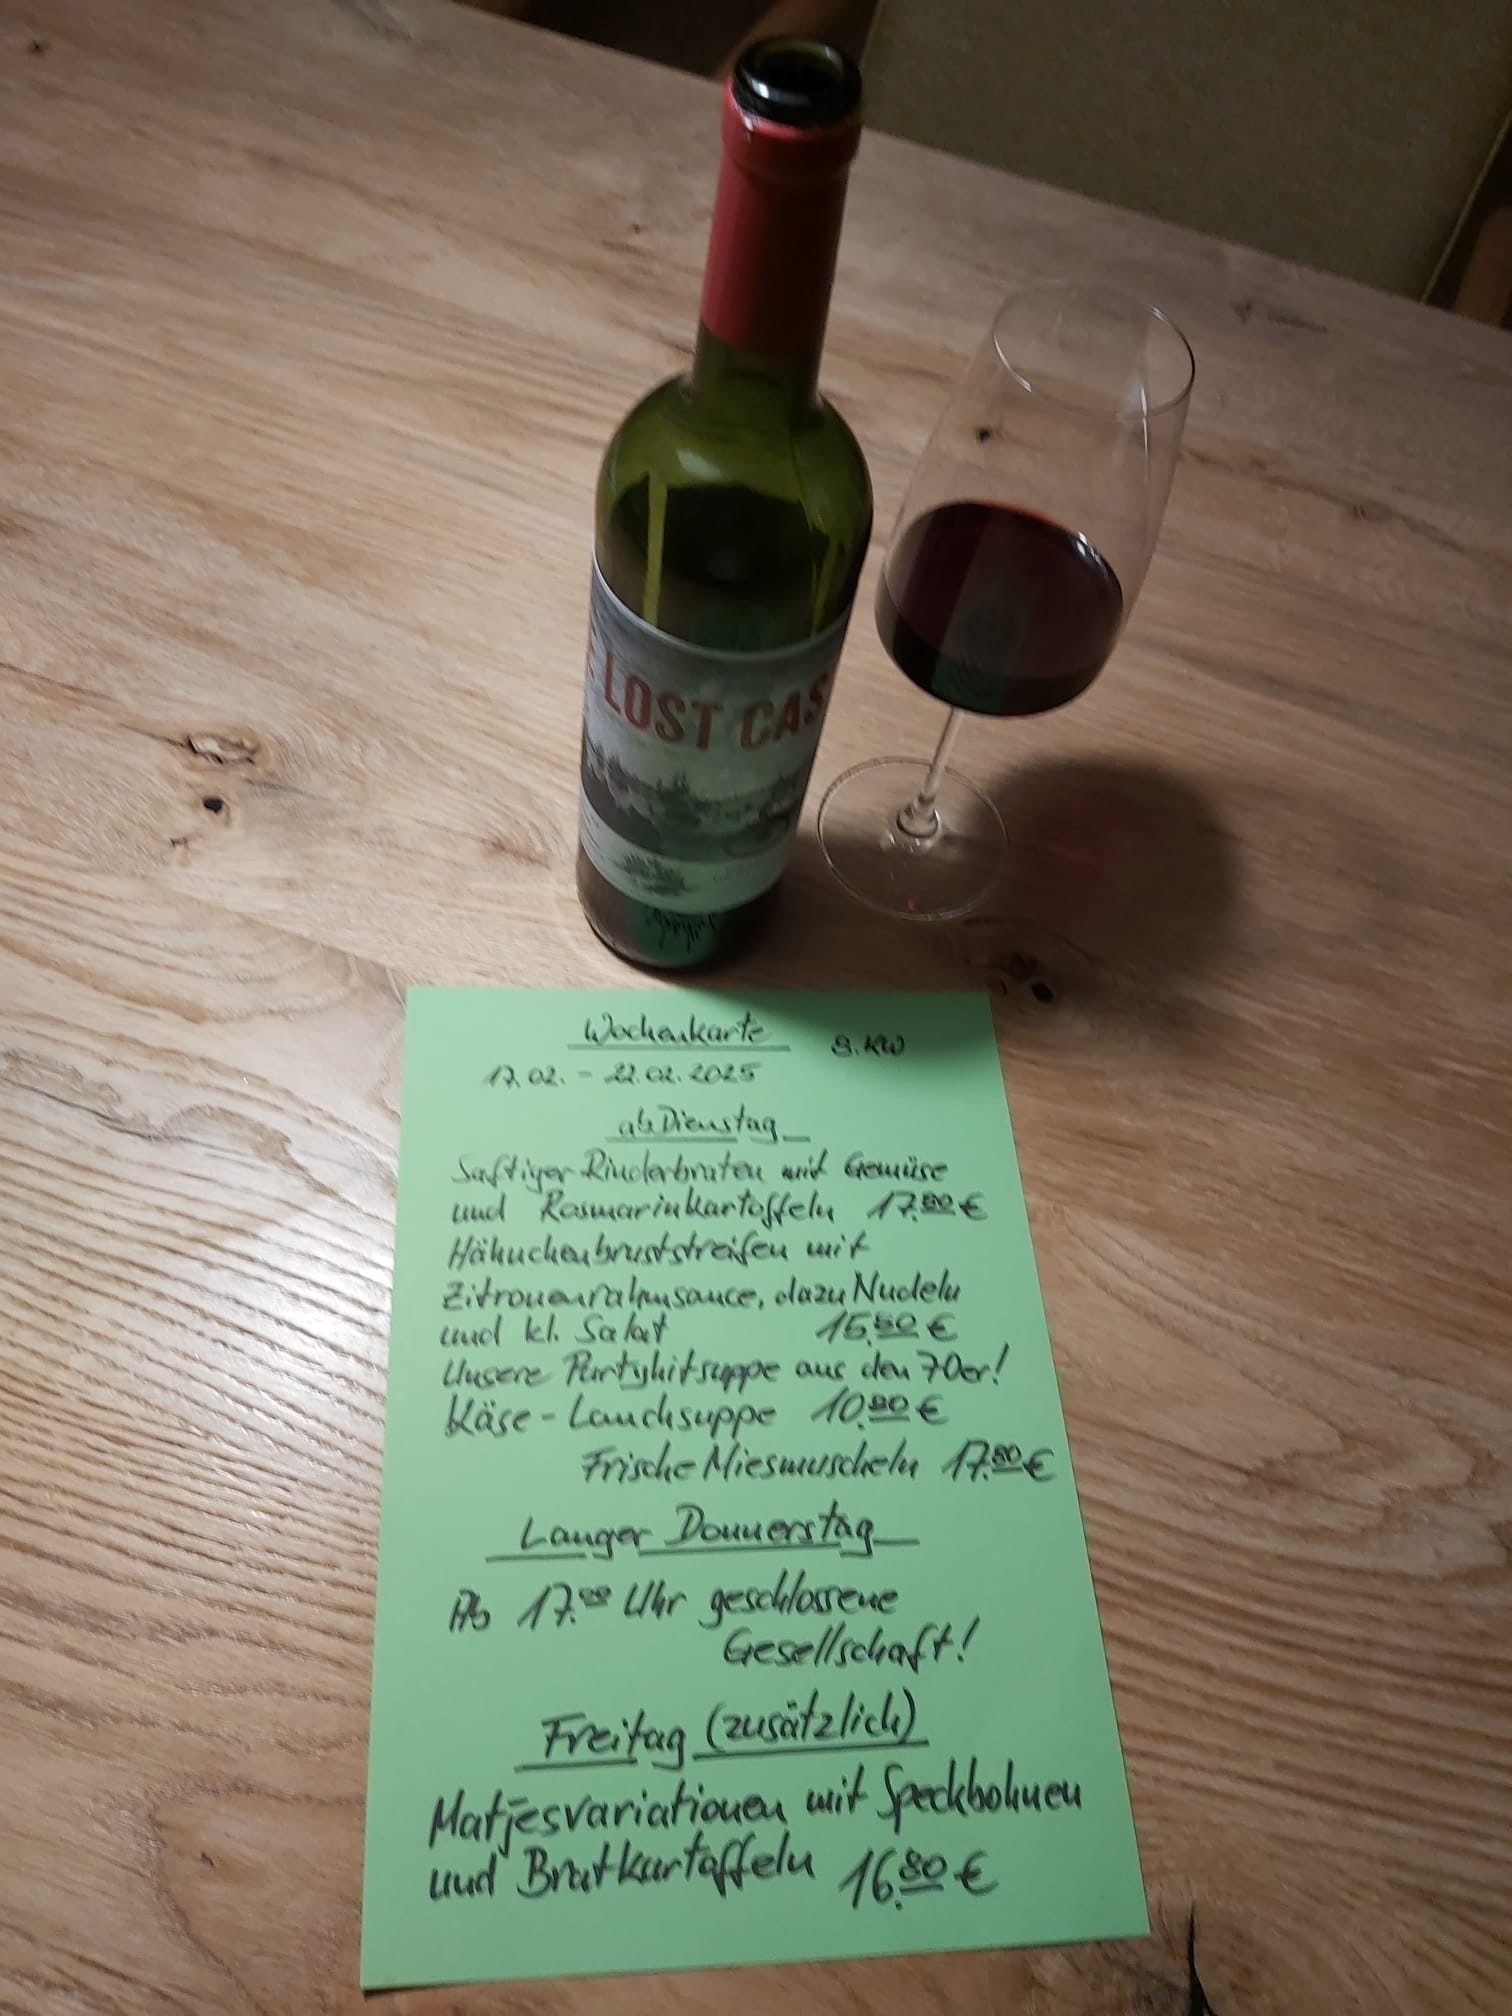 LOST CAS
Wochenkarte 8.KW
17.02. - 22.02.2025
ab Dienstag
Saftiger Rinderbraten mit Gemüse
und Rosmarinkartoffeln 17.80 €
Hähnchenbruststreifen mit
Zitronenrahmsauce, dazu Nudeln
und kl. Salat 15.80 €
Unsere Partyhitsuppe aus den 70er!
Käse-Lauchsuppe 10.80 €
Frische Miesmuscheln 17.80 €
Langer Donnerstag
Ab 17.00 Uhr geschlossene
Gesellschaft!
Freitag (zusätzlich)
Matjesvariationen mit Speckbohnen
und Bratkartoffeln 16.80 €